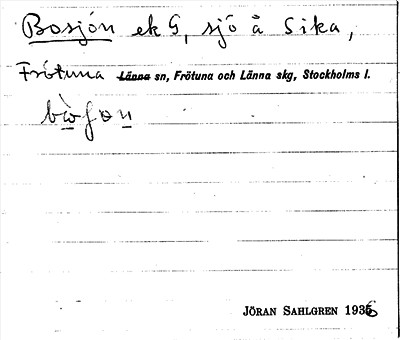 Bosjön ek G, sjö å Sika,
Frötuna Länna sn, Frötuna och Länna skg, Stockholms l.
JÖRAN SAHLGREN 1936